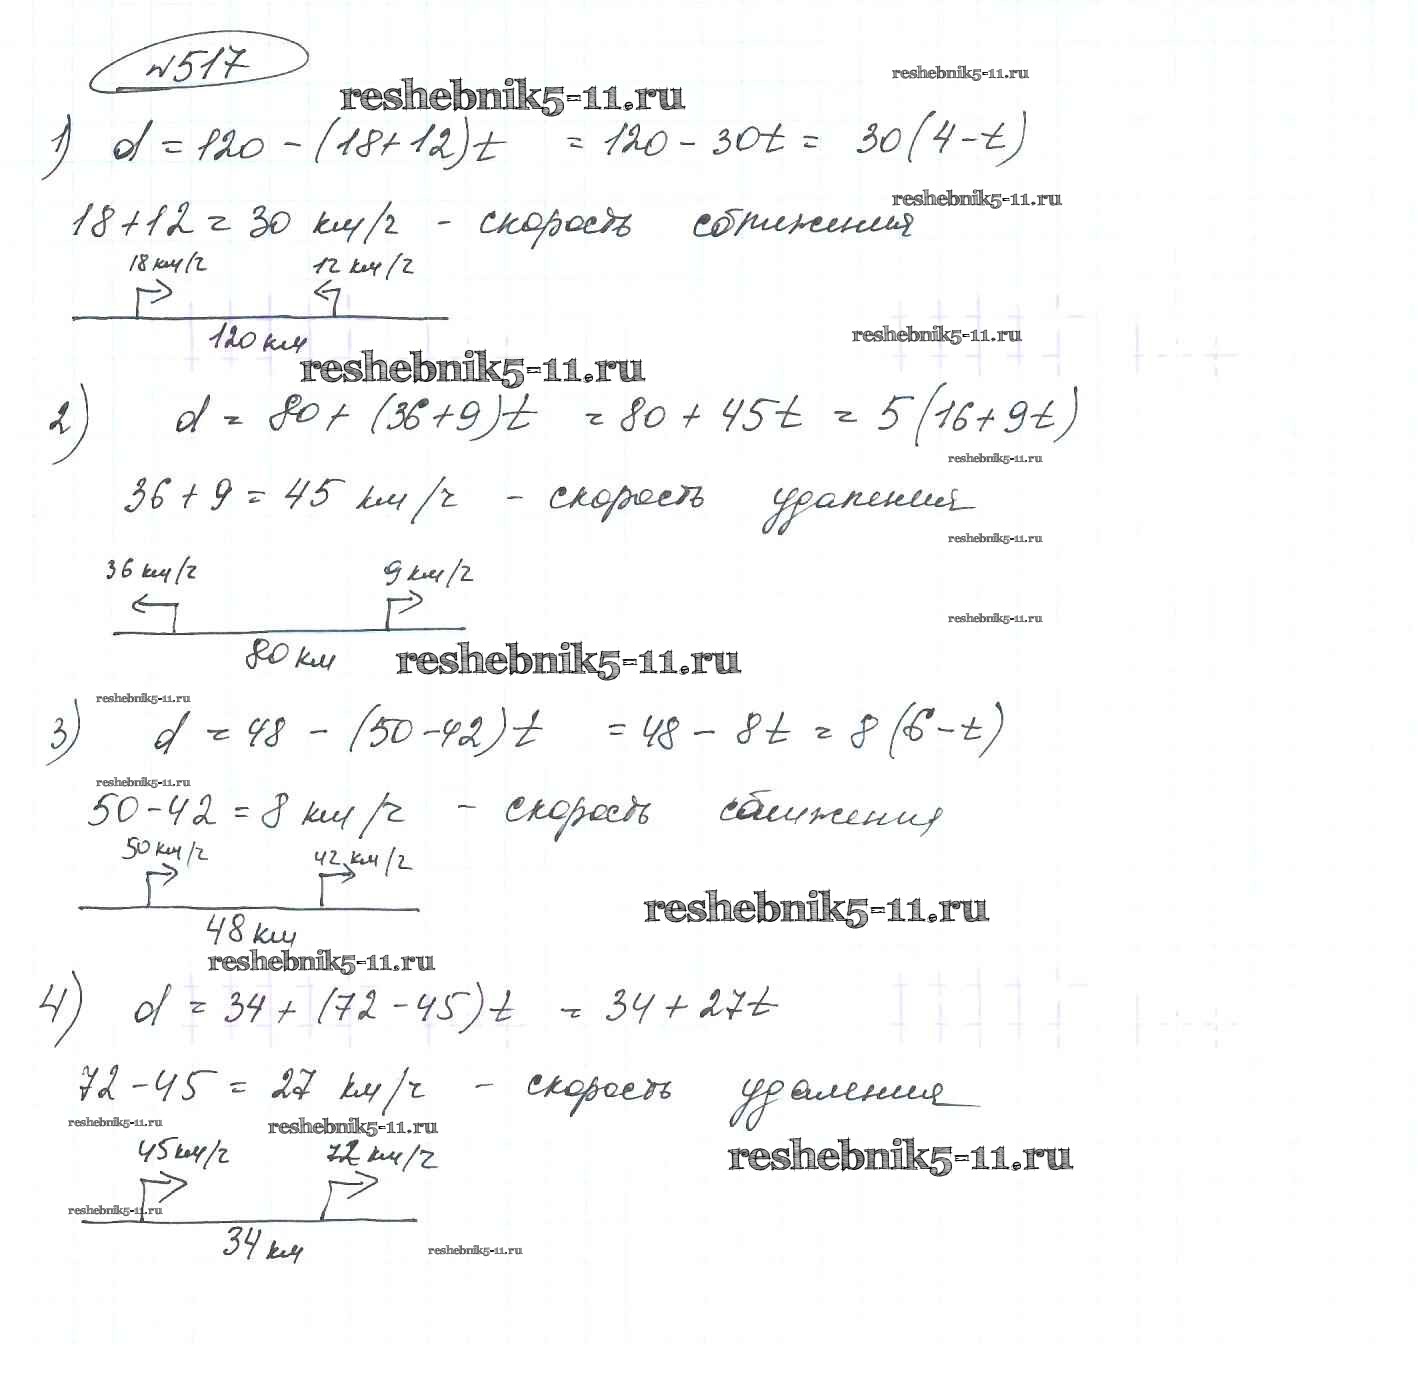 №517
reshebnik5-11.ru
reshebnik5-11.ru
1) d = 120 - (18+12)t = 120 - 30t = 30(4-t)
reshebnik5-11.ru
18+12 = 30 км/ч - скорость сближения
18 км/ч 12 км/ч
120 км
reshebnik5-11.ru
reshebnik5-11.ru
2) d = 80 + (36+9)t = 80 + 45t = 5(16+9t)
reshebnik5-11.ru
36 + 9 = 45 км/ч - скорость удаления
reshebnik5-11.ru
36 км/ч 9 км/ч
reshebnik5-11.ru
80 км
reshebnik5-11.ru
reshebnik5-11.ru
3) d = 48 - (50-42)t = 48 - 8t = 8(6-t)
reshebnik5-11.ru
50-42 = 8 км/ч - скорость сближения
50 км/ч 42 км/ч
reshebnik5-11.ru
48 км
reshebnik5-11.ru
4) d = 34 + (72-45)t = 34 + 27t
72-45 = 27 км/ч - скорость удаления
reshebnik5-11.ru reshebnik5-11.ru
45 км/ч 72 км/ч
reshebnik5-11.ru
reshebnik5-11.ru
34 км
reshebnik5-11.ru